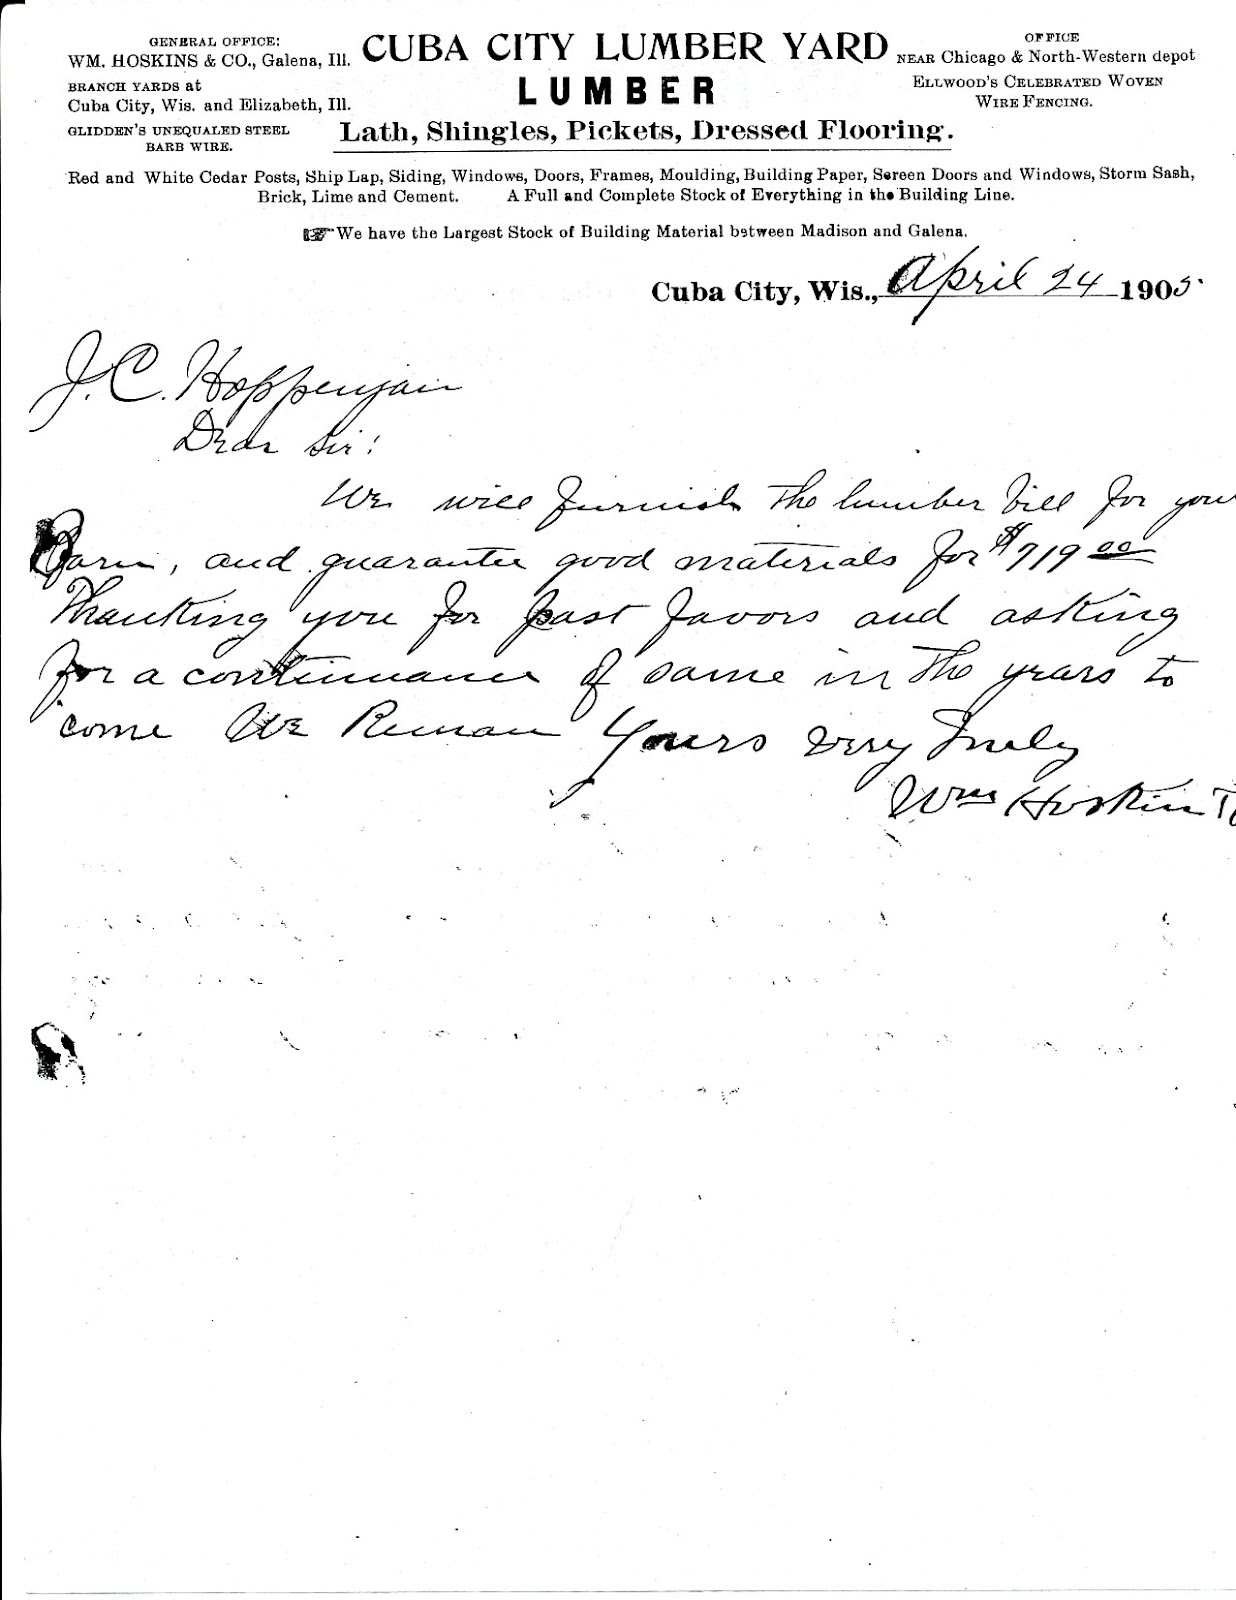 GENERAL OFFICE:
WM. HOSKINS & CO., Galena, Ill.
BRANCH YARDS at
Cuba City, Wis. and Elizabeth, Ill.
GLIDDEN'S UNEQUALED STEEL
BARB WIRE.
CUBA CITY LUMBER YARD
LUMBER
Lath, Shingles, Pickets, Dressed Flooring.
OFFICE
NEAR Chicago & North-Western depot
ELLWOOD'S CELEBRATED WOVEN
WIRE FENCING.
Red and White Cedar Posts, Ship Lap, Siding, Windows, Doors, Frames, Moulding, Building Paper, Screen Doors and Windows, Storm Sash,
Brick, Lime and Cement. A Full and Complete Stock of Everything in the Building Line.
☞We have the Largest Stock of Building Material between Madison and Galena.
Cuba City, Wis., April 24 1905
J. C. Hoppenjan
Dear Sir!
We will furnish the lumber bill for your
Barn, and guarantee good materials for $719 00
Thanking you for past favors and asking
for a continuance of same in the years to
come We Remain Yours Very Truly
Wm Hoskin